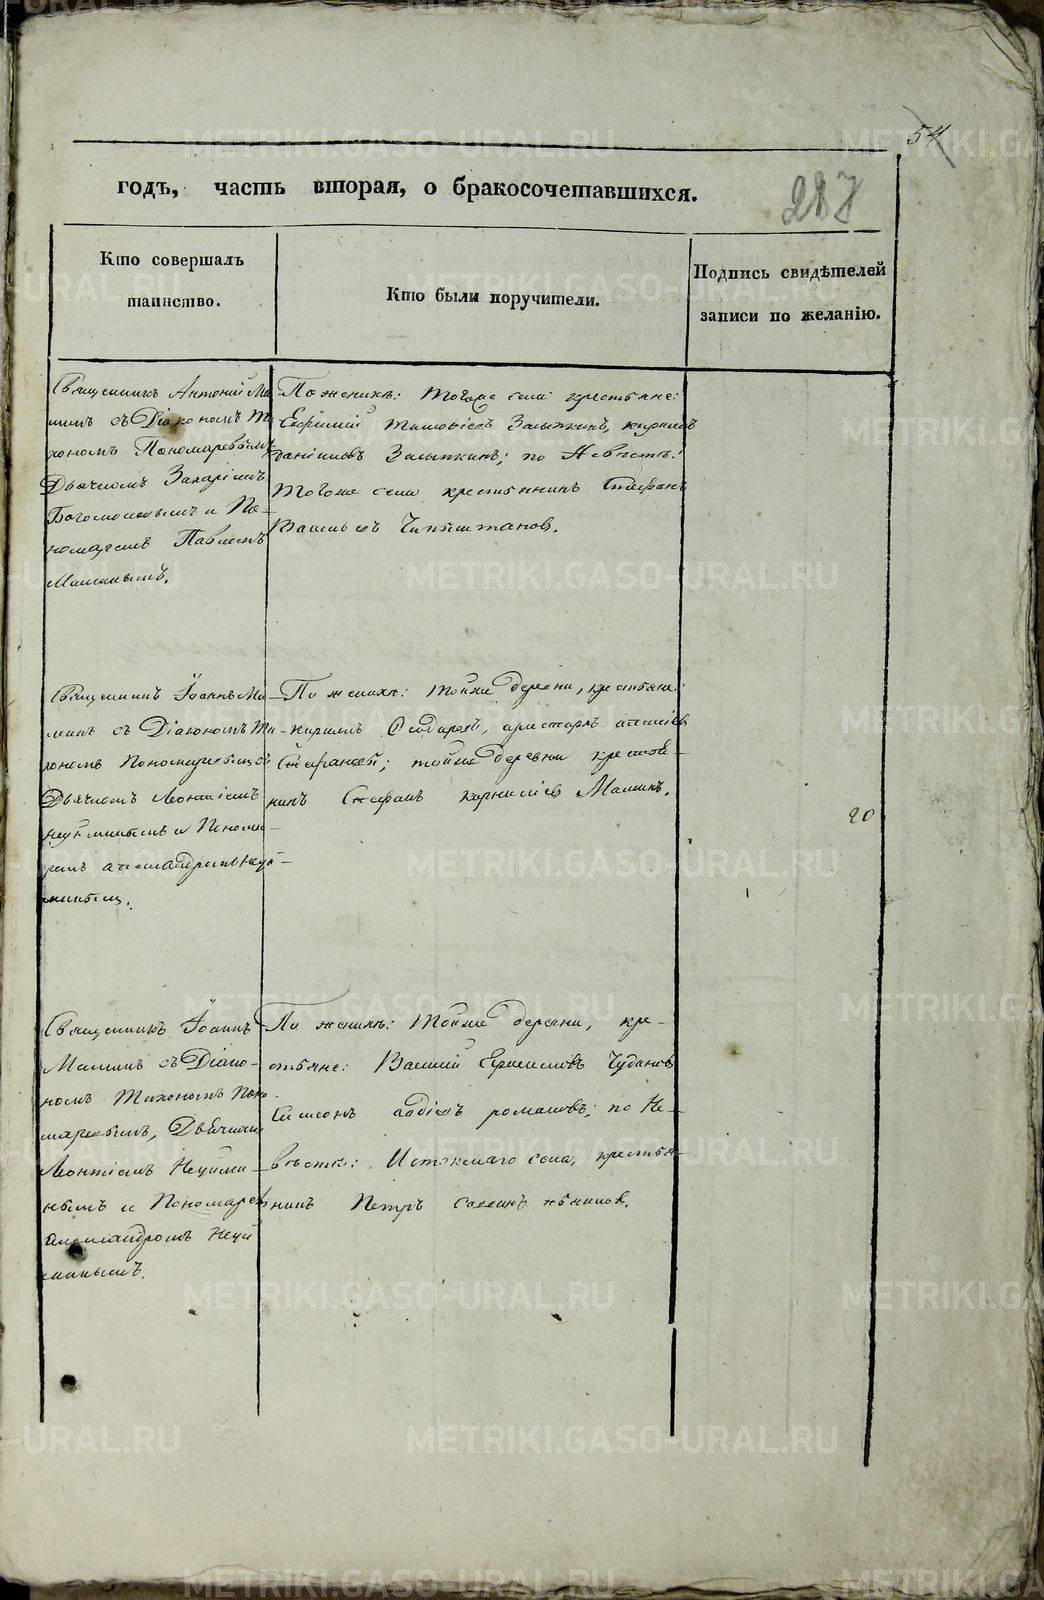 54
годъ, часть вторая, о бракосочетавшихся.
287
Кто совершалъ
таинство.
Кто были поручители.
Подпись свидѣтелей
записи по желанію.
Священникъ Антоній Ма
минъ съ Діакономъ Ти
хономъ Пономаревымъ
Дьячкомъ Захаріемъ
Богомоловымъ и По-
номаремъ Павломъ
Маминымъ.
По женихѣ: тогоже села крестьяне:
Засыпкинъ, кирилъ
Засыпкинъ; по Невѣстѣ:
тогоже села крестьянинъ Стефанъ
Васильевъ
Священникъ Іоаннъ Ма
минъ съ Діакономъ Ти-
хономъ Пономаревымъ
Дьячкомъ Леонтіемъ
и Понома-
ремъ александромъ Неуй-
минымъ.
По женихѣ: тойже деревни, крестьяне:
кирилъ аристархъ
тойже деревни крестья-
нинъ Стефанъ корниліевъ Маминъ.
20
Священникъ Іоаннъ
Маминъ съ Діако-
номъ Тихономъ Поно
маревымъ, Дьячкомъ
Леонтіемъ Неуйми-
нымъ и Пономаремъ
александромъ Неуй
минымъ.
По женихѣ: тойже деревни, кре-
стьяне: Василій Чудиновъ
Симеонъ романовъ; по Не-
вѣстѣ: Истокскаго села, крестья-
нинъ Петръ
METRIKI.GASO-URAL.RU